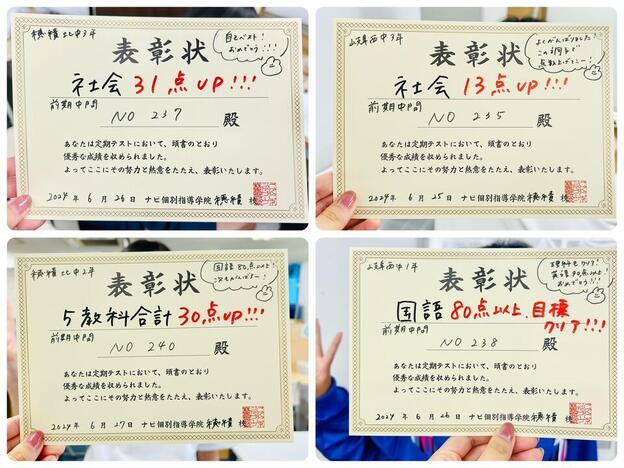 穂積北中3年
自己ベスト!
おめでとう!!!
表彰状
社会 31点UP!!!
前期中間
NO 237 殿
あなたは定期テストにおいて、頭書のとおり
優秀な成績を収められました。
よってここにその努力と熱意をたたえ、表彰いたします。
2024 年 6 月 26 日 ナビ個別指導学院 穂積 校
岐阜西中3年
よくがんばりました!
この調子で
点数上げてこー!
表彰状
社会 13点UP!!!
前期中間
NO 235 殿
あなたは定期テストにおいて、頭書のとおり
優秀な成績を収められました。
よってここにその努力と熱意をたたえ、表彰いたします。
2024 年 6 月 25 日 ナビ個別指導学院 穂積 校
穂積北中2年
国語80点以上!
次もがんばろー!
表彰状
5教科合計 30点UP!!!
前期中間
NO 240 殿
あなたは定期テストにおいて、頭書のとおり
優秀な成績を収められました。
よってここにその努力と熱意をたたえ、表彰いたします。
2024 年 6 月 27 日 ナビ個別指導学院 穂積 校
岐阜西中1年
理科もクリア!
英語90点以上!
おめでとう!!!
表彰状
国語 80点以上、目標
クリア!!!
前期中間
NO 238 殿
あなたは定期テストにおいて、頭書のとおり
優秀な成績を収められました。
よってここにその努力と熱意をたたえ、表彰いたします。
2024 年 6 月 26 日 ナビ個別指導学院 穂積 校